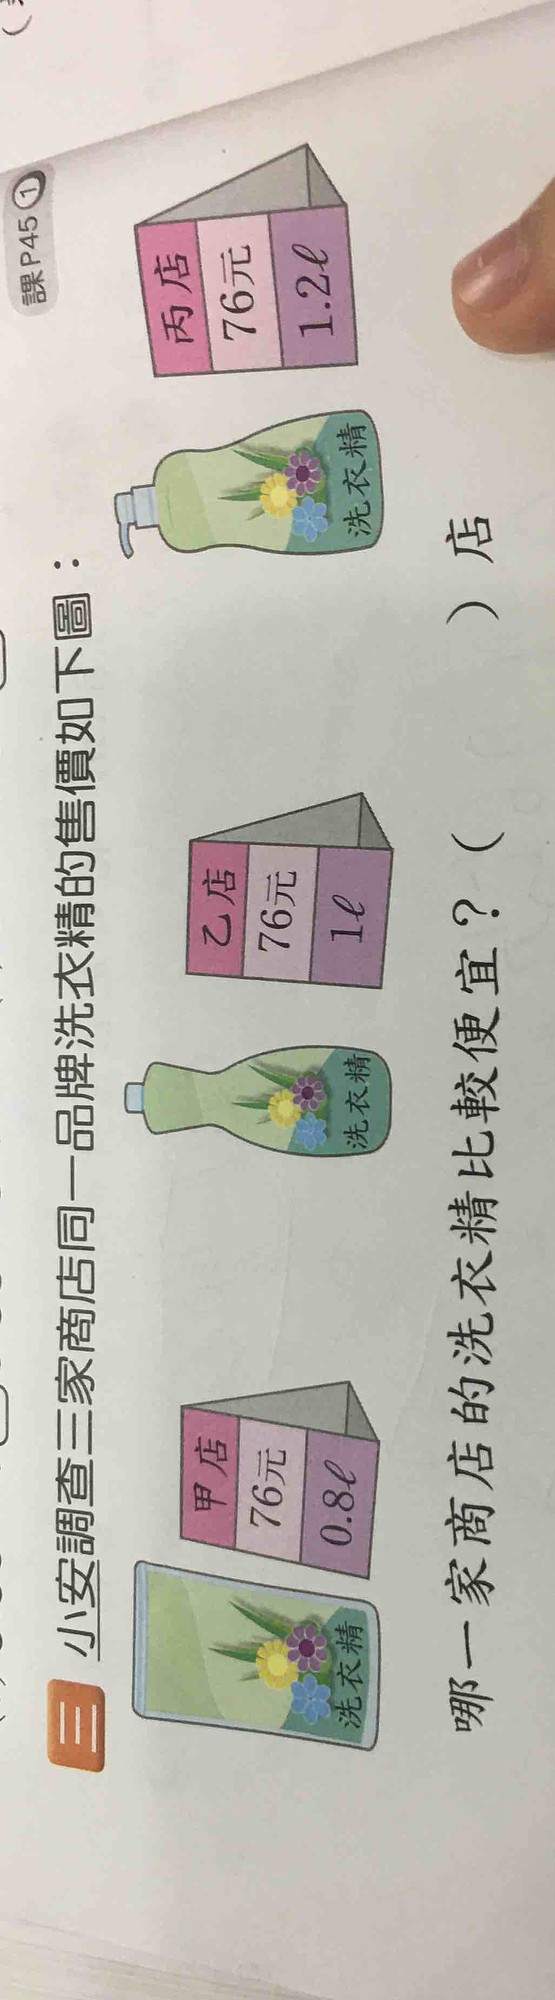 課P45 ①
三 小安調查三家商店同一品牌洗衣精的售價如下圖：
洗衣精
甲店
76元
0.8ℓ
洗衣精
乙店
76元
1ℓ
洗衣精
丙店
76元
1.2ℓ
哪一家商店的洗衣精比較便宜？（　　　）店